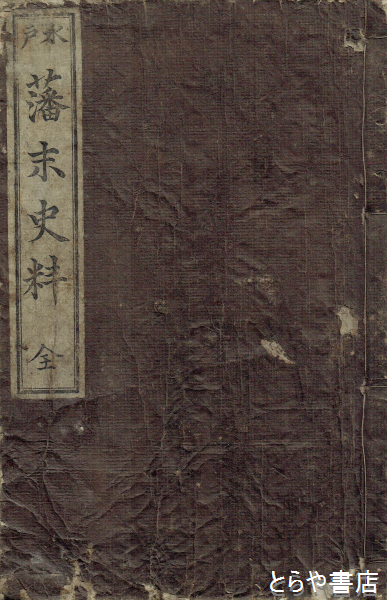 水戸
藩末史料 全
とらや書店